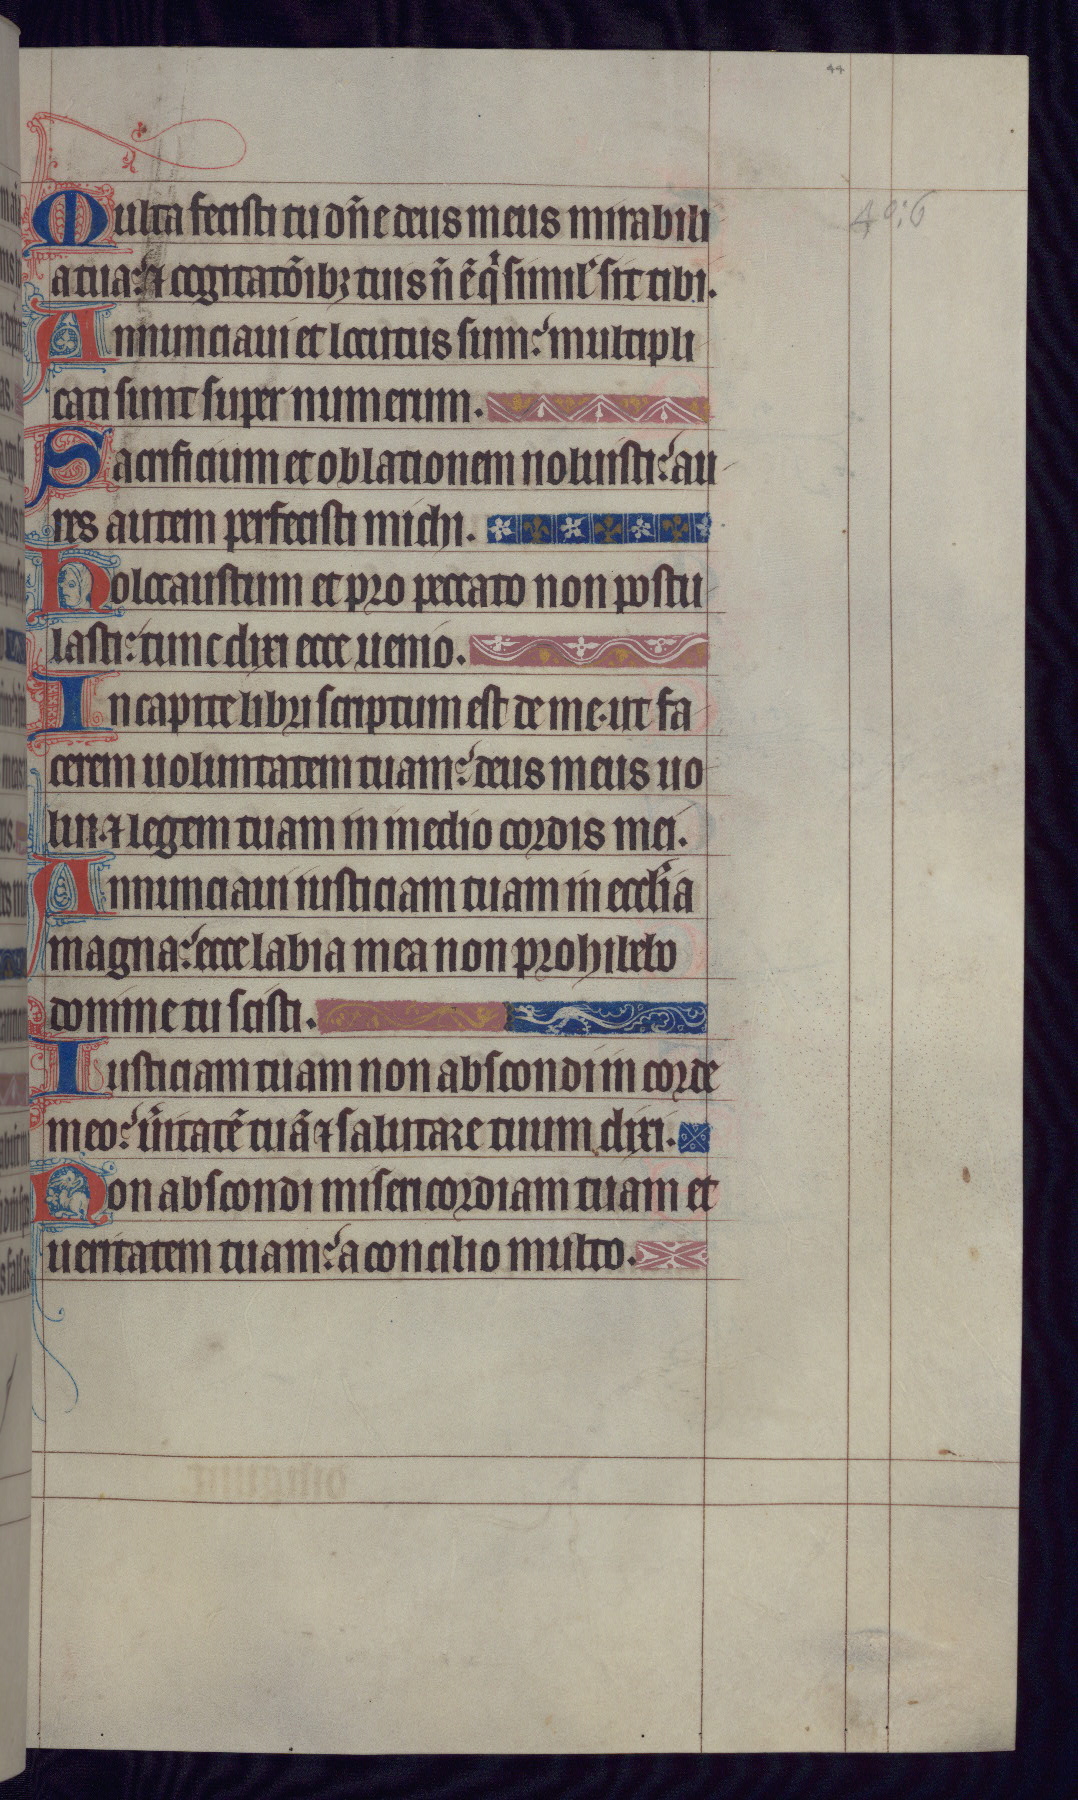 44
40:6
Multa fecisti tu dn̄e deus meus mirabili
a tua: ⁊ cogitatōibꝫ tuis n̄ ē qͥ simil' sit tibi.
Annunciaui et locutus sum: multipli
cati sunt super numerum.
Sacrificium et oblationem noluisti: au
res autem perfecisti michi.
Holocaustum et pro peccato non postu
lasti: tunc dixi ecce uenio.
In capite libri scriptum est de me. ut fa
cerem uoluntatem tuam: deus meus uo
lui. ⁊ legem tuam in medio cordis mei.
Annunciaui iusticiam tuam in eccl̄ia
magna: ecce labia mea non prohibebo
domine tu scisti.
Iusticiam tuam non abscondi in corde
meo: ūitatē tuā ⁊ salutare tuum dixi.
Non abscondi misericordiam tuam et
ueritatem tuam: a concilio multo.